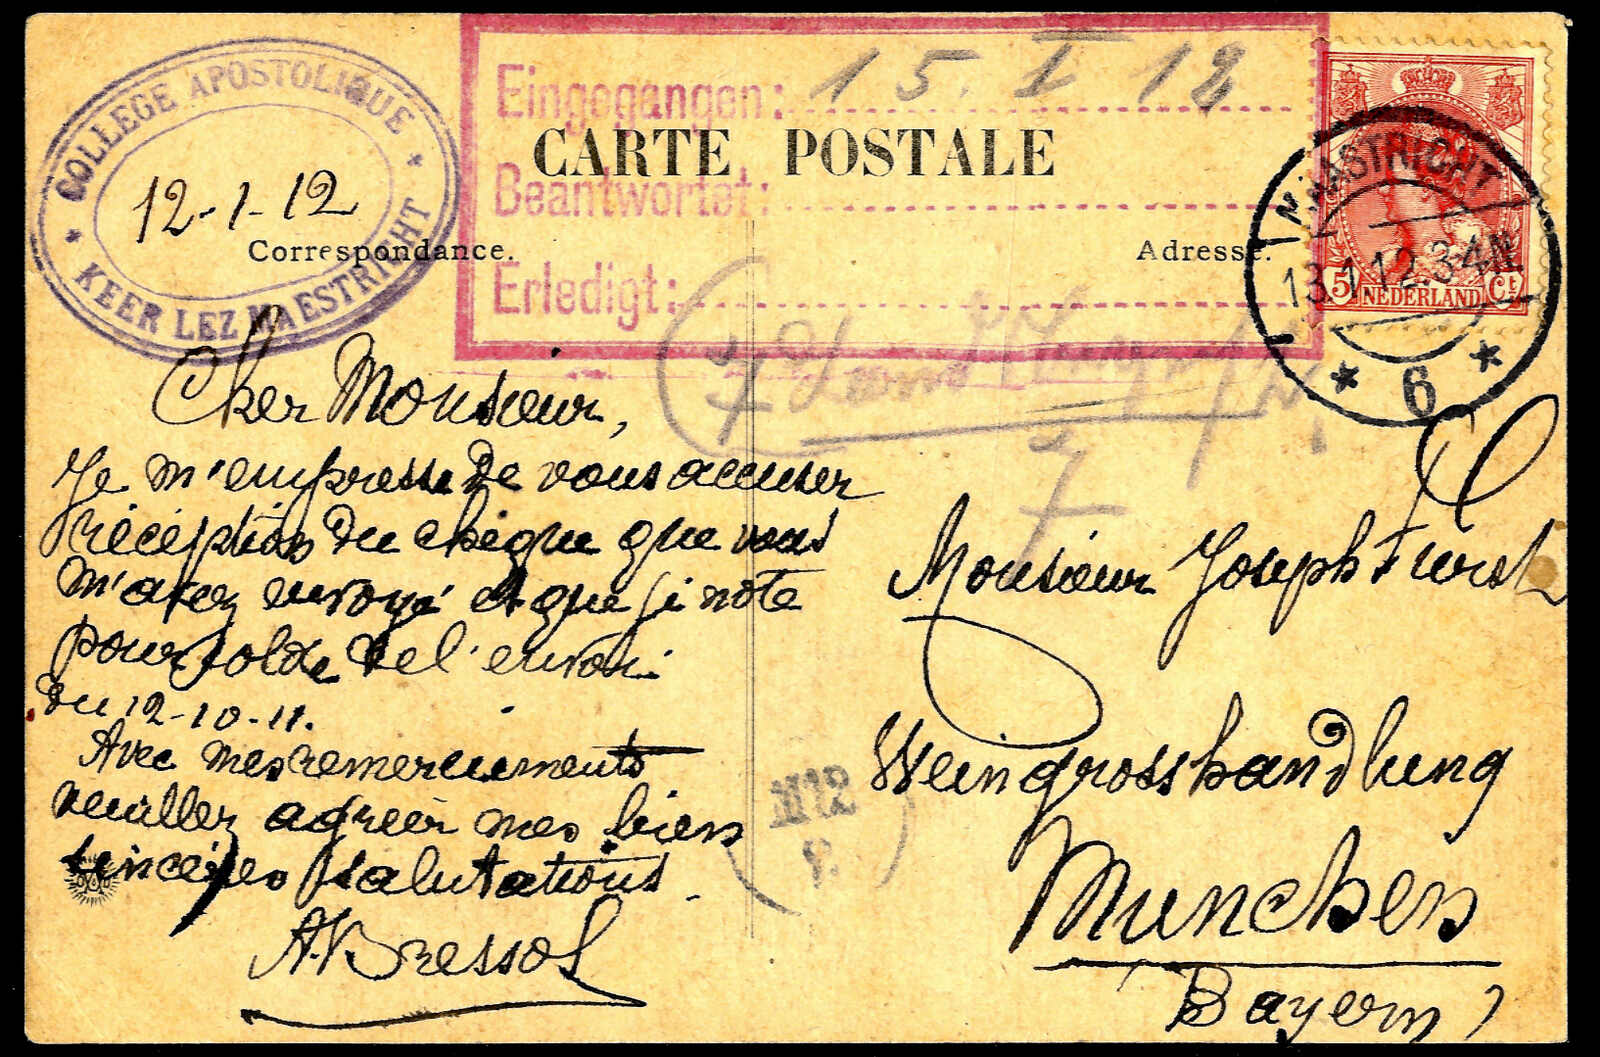 COLLEGE APOSTOLIQUE
* KEER LEZ MAESTRICHT *
12-1-12
Eingegangen: 15. I 12
CARTE POSTALE
Beantwortet:
Correspondance.
Adresse.
Erledigt:
MAASTRICHT
13.1.12.3-4N
* 6 *
5 NEDERLAND Ct
Cher Monsieur,
Je m'empresse de vous accuser
réception du chèque que vous
m'avez envoyé et que je note
pour solde de l'envoi
du 12-10-11.
Avec mes remerciements
veuillez agréer mes bien
sincères salutations.
A. Bressol
7
Monsieur Joseph Fürst
Weingrosshandlung
München
Bayern)